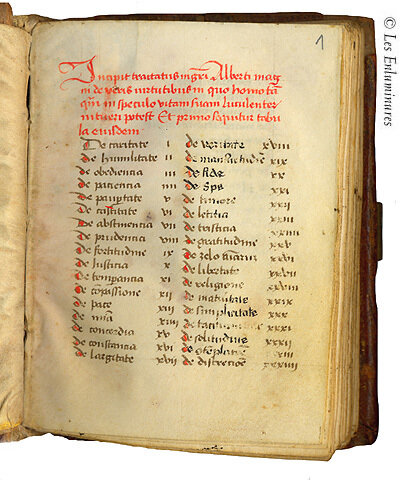 1
Incipit tractatus mgri Alberti mag
ni de veris virtutibus in quo homo tā
q̄m in speculo vitam suam luculenter
intueri potest Et primo sequitur tabu
la eiusdem
De caritate i
De humilitate ii
De obediencia iii
De paciencia iiii
De paupertate v
De castitate vi
De abstinencia vii
De prudencia viii
De fortitudine ix
De Justicia x
De temperancia xi
De cōpassione xii
De pace xiii
De mīa xiiii
De concordia xv
De constancia xvi
De largitate xvii
de veritate xviii
de mansuetudine xix
de fide xx
de Spe xxi
de timore xxii
de leticia xxiii
de tristicia xxiiii
de gratitudine xxv
de zelo animarum xxvi
de libertate xxvii
de religione xxviii
de maturitate xxix
de simplicitate xxx
de taciturnitate xxxi
de solitudine xxxii
de cōtemplatione xxxiii
de discrecione xxxiiii
© Les Enluminures